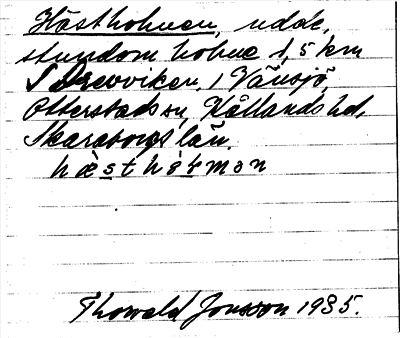 Hästholmen, udde,
stundom holme 1,5 km
S Drevviken, i Vänsjö,
Otterstads sn, Kållands hd,
Skaraborgs län.
hæ̀sthɷ̀lmən
Thorvald Jonsson 1935.